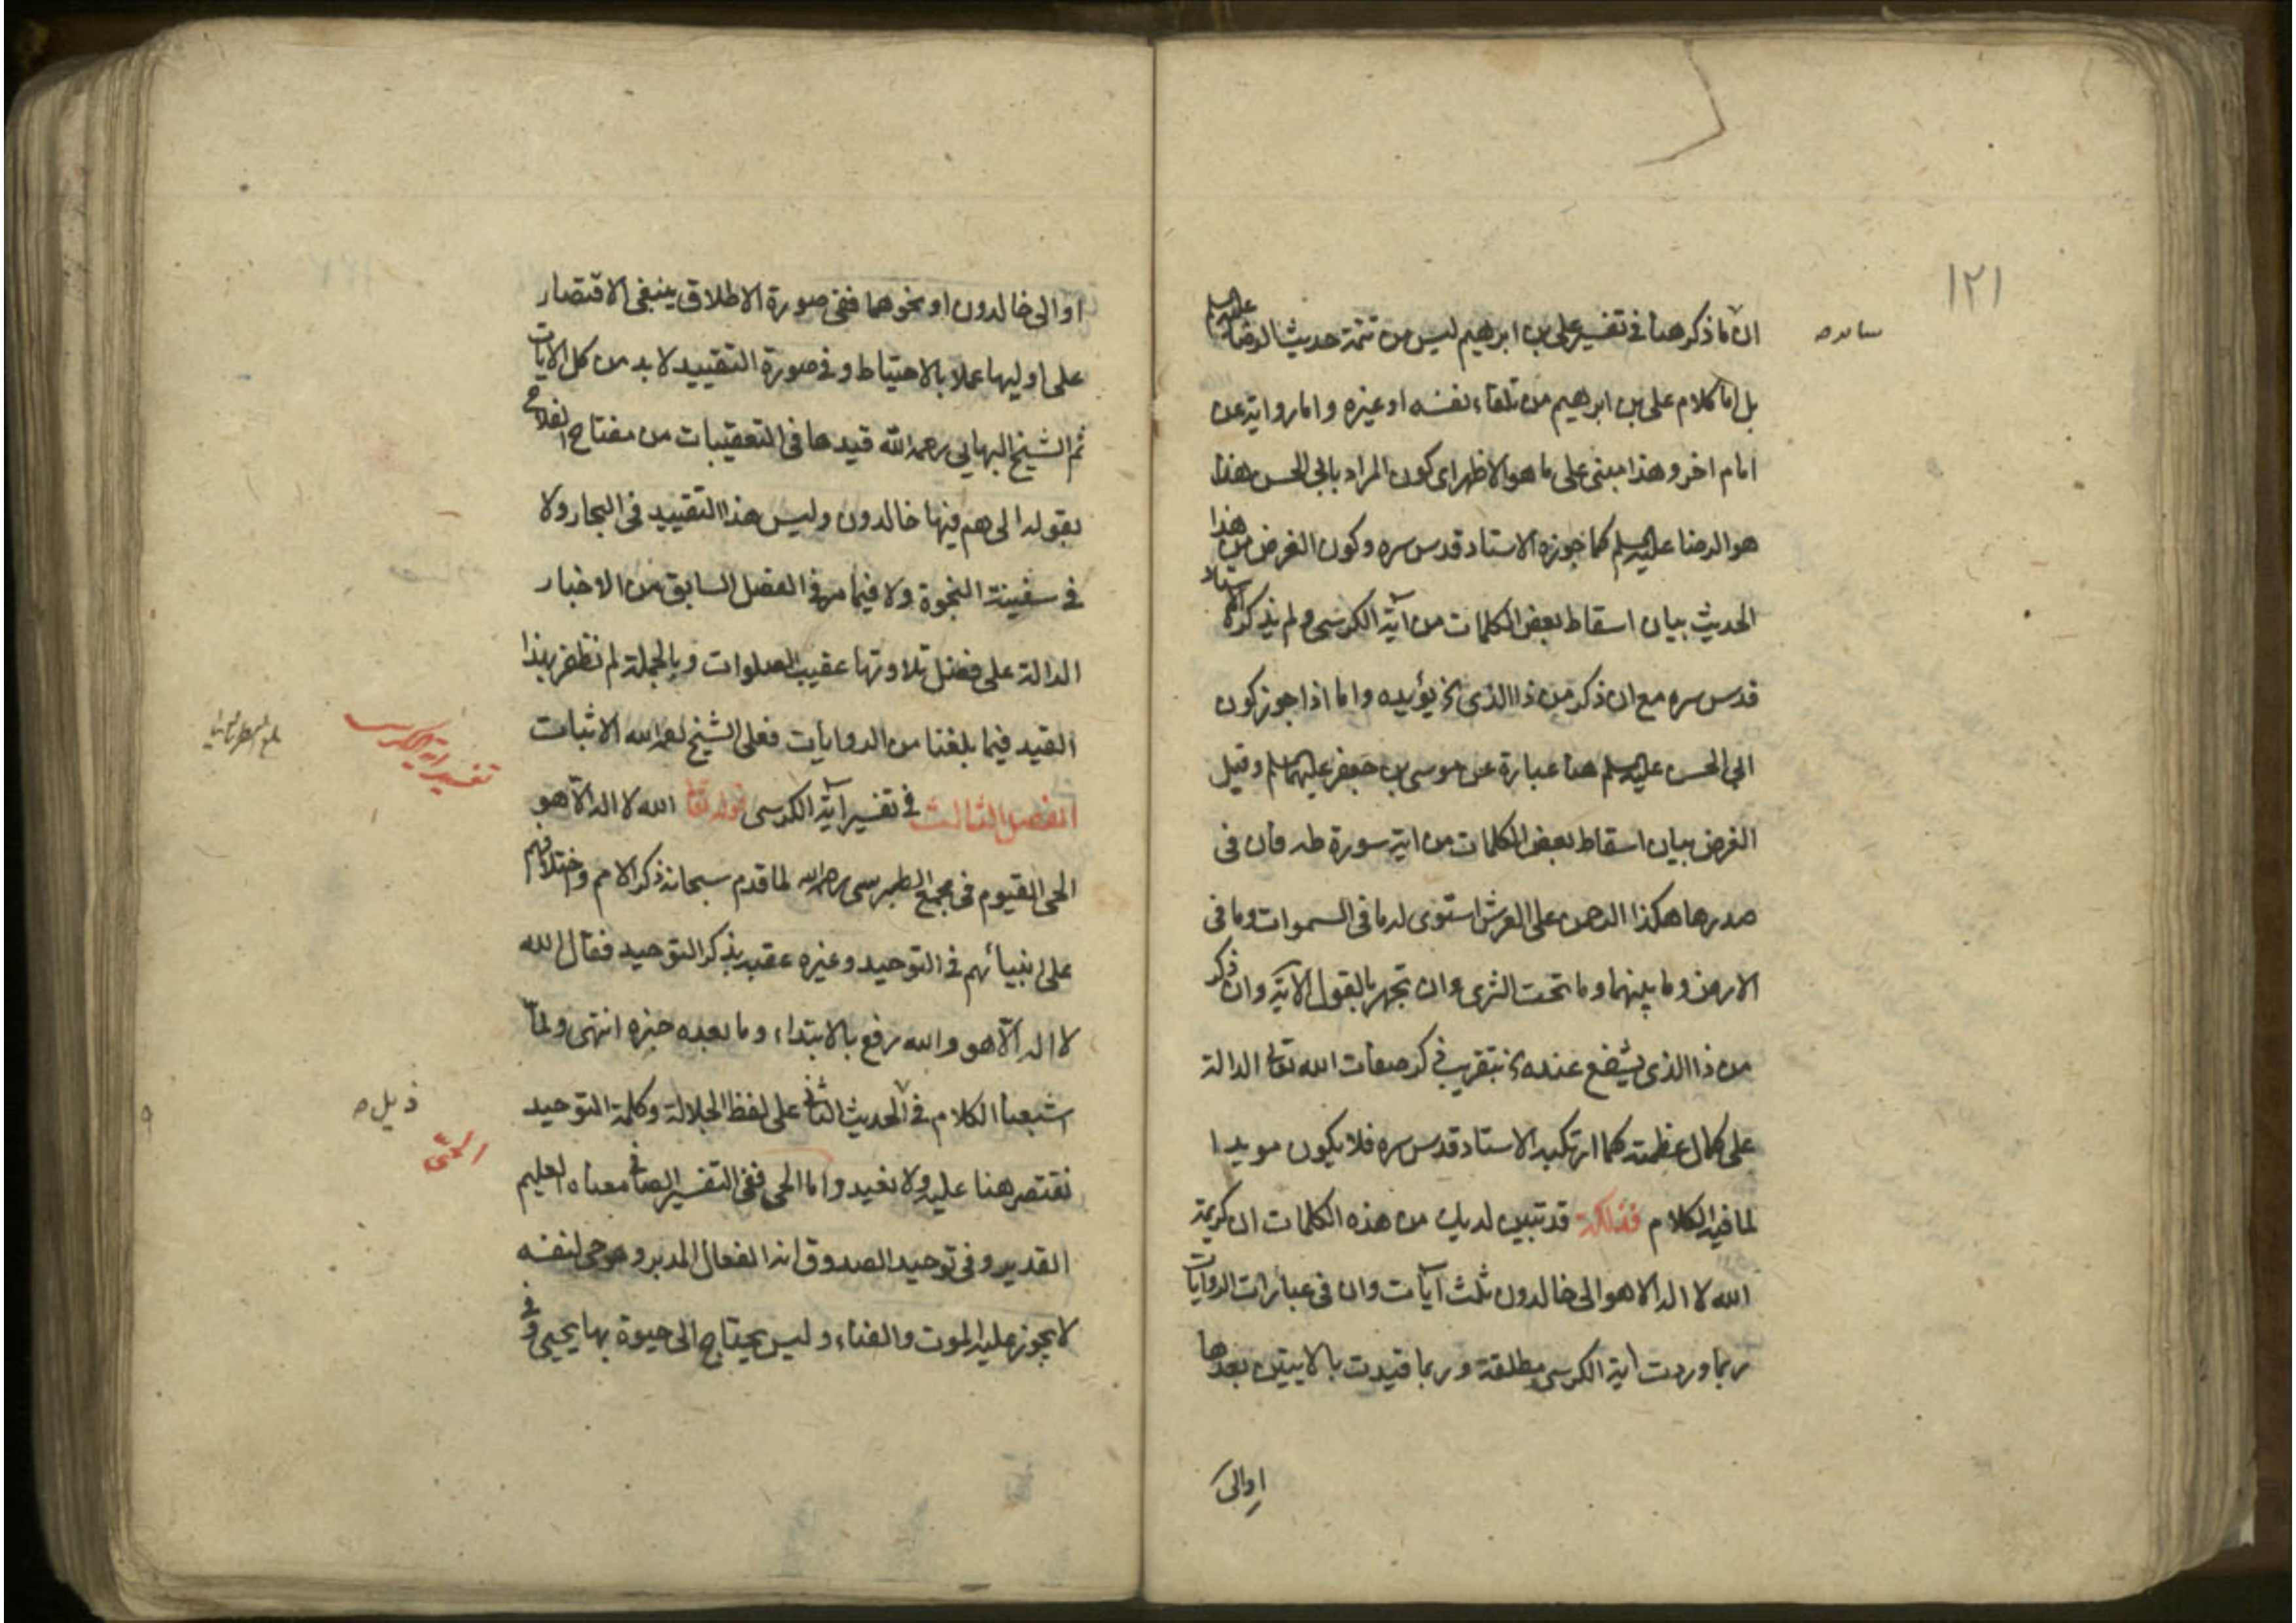 ١٢١
ان ما ذكر هنا في تفسير علي بن ابرهيم ليس من تتمة حديث الرضا عليه السلم
بل اما كلام علي بن ابرهيم من تلقاء نفسه او غيره واما رواية عن
امام اخر وهذا مبنى على ما هو الاظهر اى كون المراد بابي الحسن هذا
هو الرضا عليه السلم كما جوزه الاستاد قدس سره وكون الغرض من هذا
الحديث بيان اسقاط بعض الكلمات من آية الكرسي ولم يذكره الاستاد
قدس سره مع ان ذكر من ذا الذى الخ يؤيده واما اذا جوز كون
ابي الحسن عليه السلم هنا عبارة عن موسى بن جعفر عليهما السلم وقيل
الغرض بيان اسقاط بعض الكلمات من اية سورة طه فان في
صدرها هكذا الرحمن على العرش استوى له ما في السموات وما في
الارض وما بينهما وما تحت الثرى وان تجهر بالقول الآية وان ذكر
من ذا الذى يشفع عنده الخ بتقريب ذكر صفات الله تعالى الدالة
على كمال عظمته كما ارتكبه الاستاد قدس سره فلا يكون مويدا
لما فيه الكلام فذلكة قد تبين لديك من هذه الكلمات ان كريمة
الله لا اله الا هو الى خالدون ثلث آيات وان في عبارات الروايات
ربما وردت اية الكرسي مطلقة وربما قيدت بالايتين بعدها
او الى
او الى خالدون او نحوهما ففى صورة الاطلاق ينبغى الاقتصار
على اوليها عملا بالاحتياط وفي صورة التقييد لا بد من كل الايات
ثم الشيخ البهايي رحمه الله قيدها في التعقيبات من مفتاح الفلاح
بقوله الى هم فيها خالدون وليس هذا التقييد في البحار ولا
في سفينة النجوة ولا فيما مر في الفصل السابق من الاخبار
الدالة على فضل تلاوتها عقيب الصلوات وبالجملة لم نظفر بهذا
القيد فيما بلغنا من الروايات فعلى الشيخ رحمه الله الاثبات
تفسير اية الكرسي
الفصل الثالث في تفسير آية الكرسي قوله تعالى الله لا اله الا هو
الحى القيوم في مجمع الطبرسى رحمه الله لما قدم سبحانه ذكر الامم واختلافهم
على انبيائهم في التوحيد وغيره عقبه بذكر التوحيد فقال الله
لا اله الا هو والله رفع بالابتداء وما بعده خبره انتهى ولما
اشبعنا الكلام في الحديث الثاني على لفظ الجلالة وكلمة التوحيد
الحىّ
نقتصر هنا عليه ولا نعيد واما الحى ففى التفسير الصافي معناه العليم
القدير وفي توحيد الصدوق انه الفعال المدبر وهو حى لنفسه
لا يجوز عليه الموت والفناء وليس يحتاج الى حيوة بها يحيى وفي